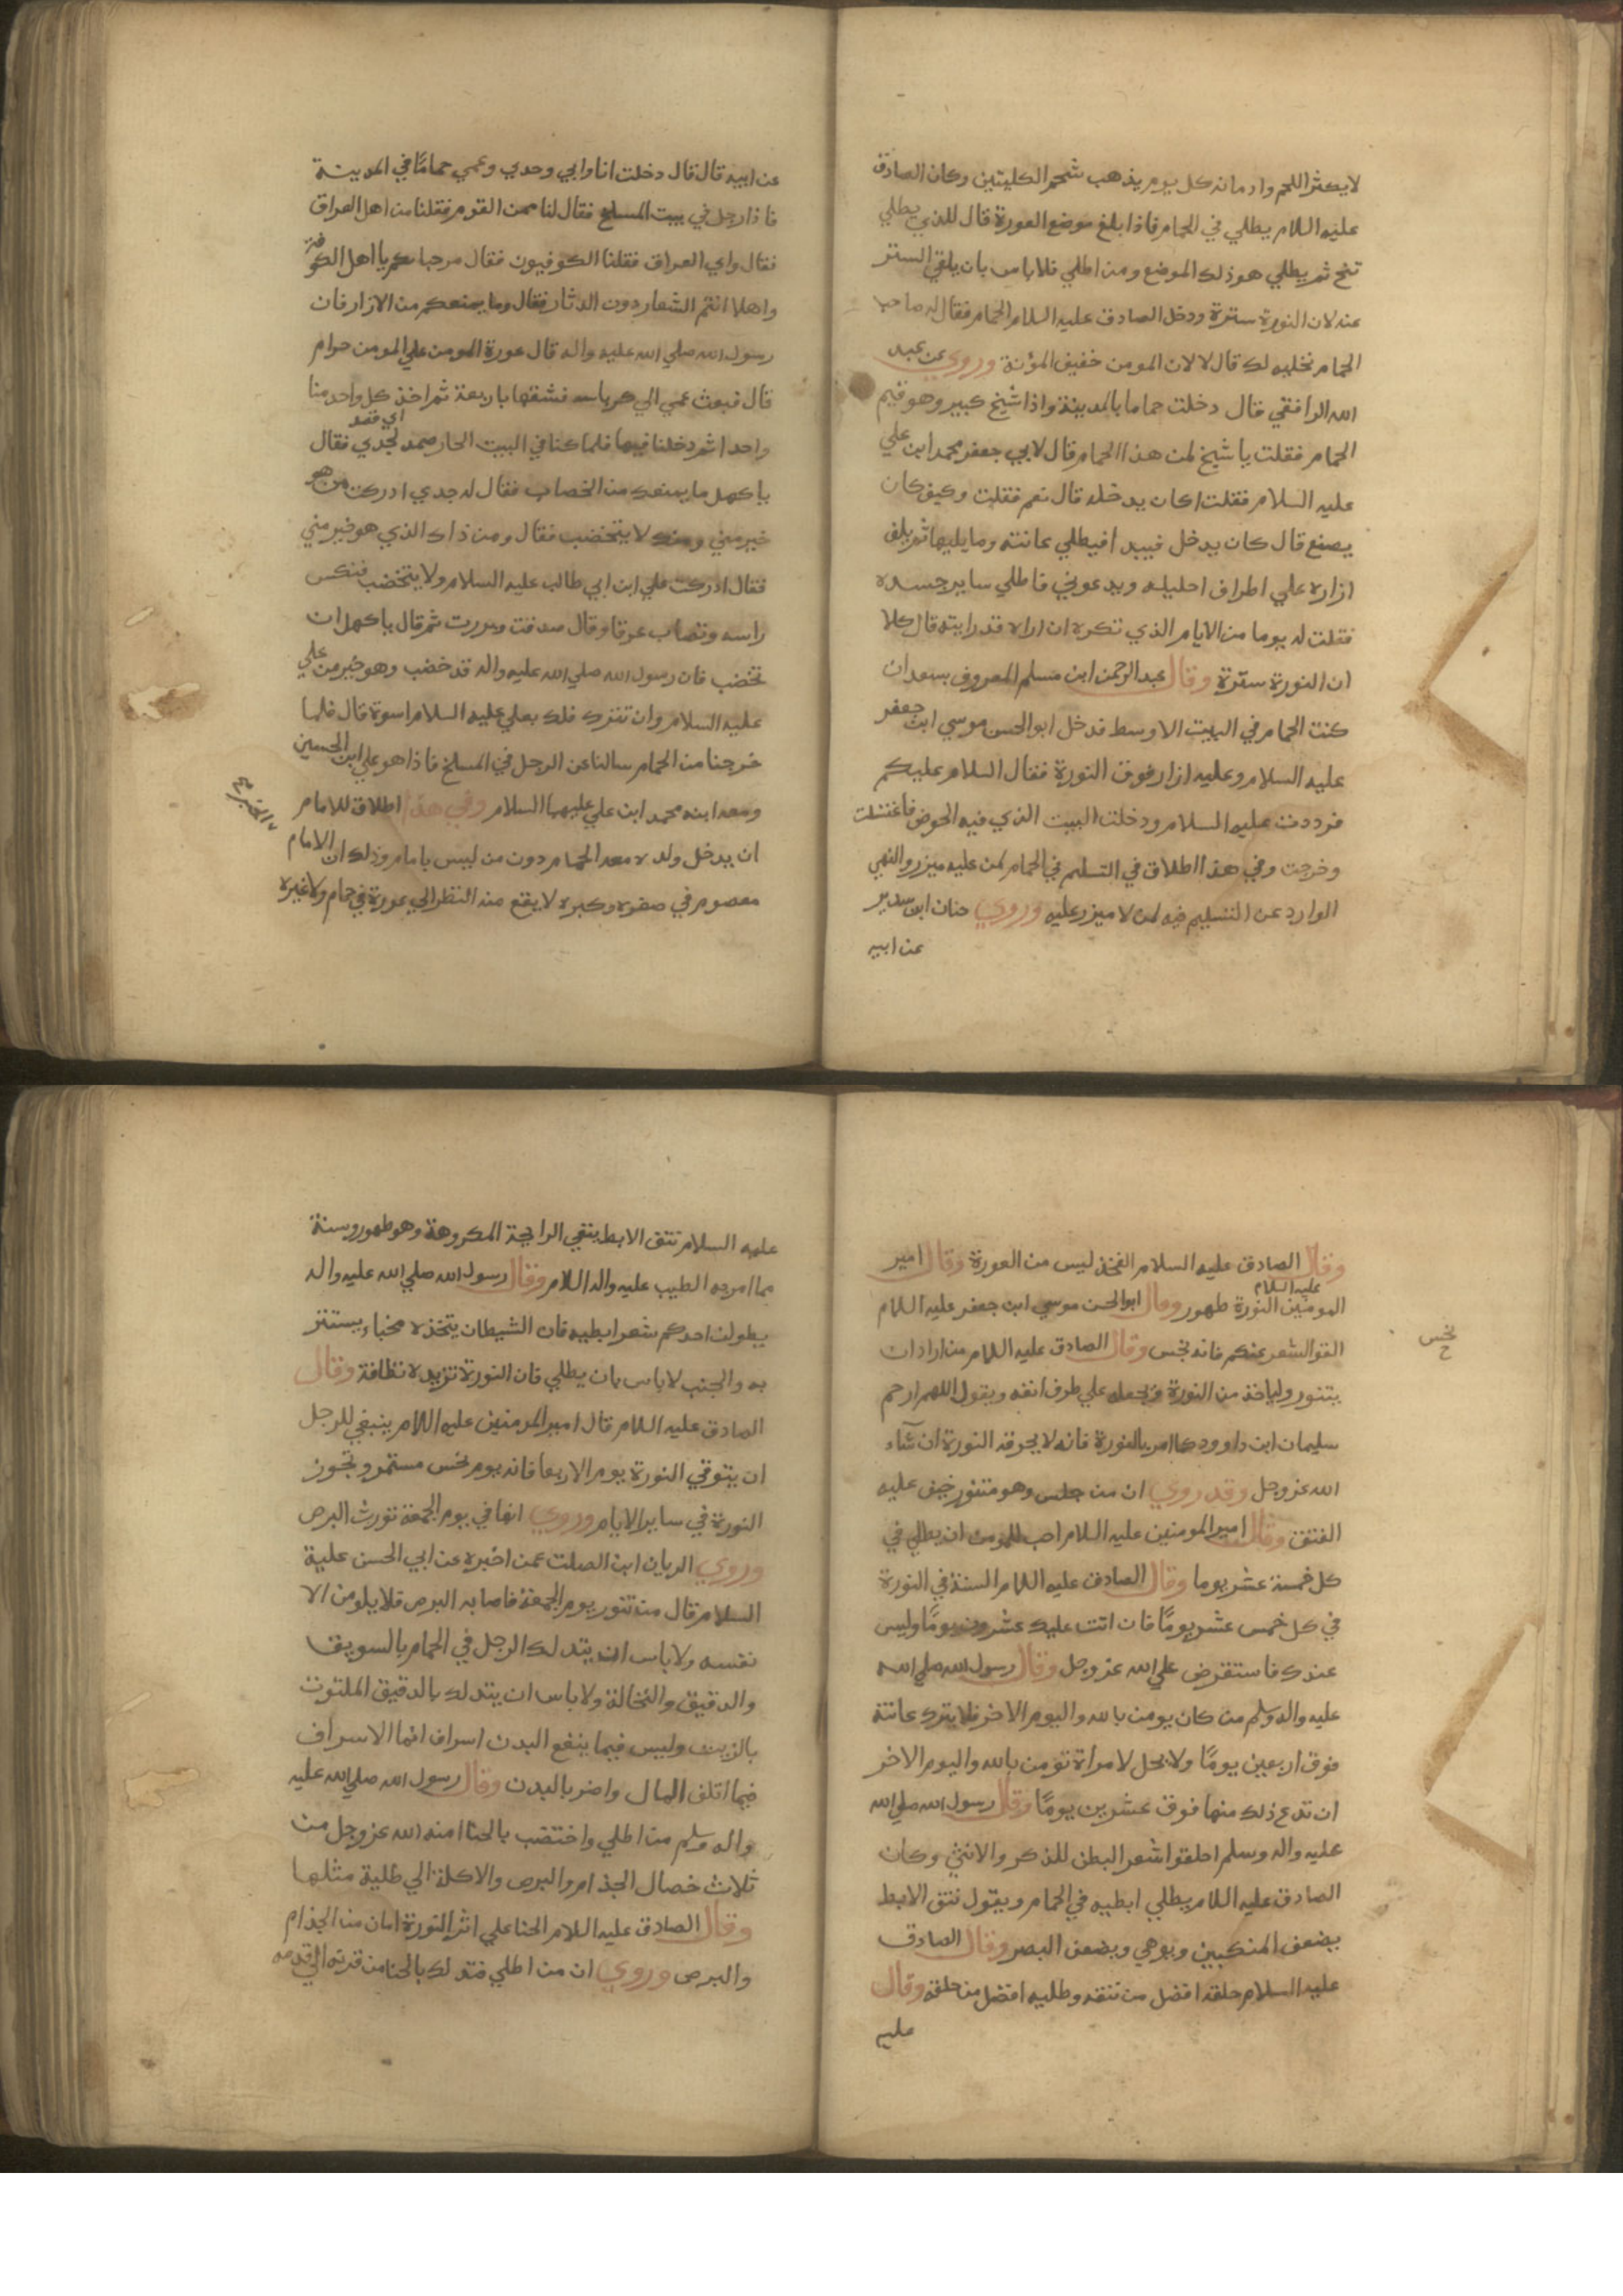 لا يكثر اللحم وادمانه كل يوم يذهب شحم الكليتين وكان الصادق
عليه السلام يطلي في الحمام فاذا بلغ موضع العورة قال للذي يطلي
تنح ثم يطلي هو ذلك الموضع ومن اطلي فلا باس بان يلقي الستر
عنه لان النورة سترة ودخل الصادق عليه السلام الحمام فقال له صاحب
الحمام نخليه لك قال لا لان المومن خفيف المؤنة وروي عن عبيد
الله الرافقي قال دخلت حماما بالمدينة واذا شيخ كبير وهو قيم
الحمام فقلت يا شيخ لمن هذا الحمام قال لابي جعفر محمد ابن علي
عليه السلام فقلت اكان يدخله قال نعم فقلت وكيف كان
يصنع قال كان يدخل فيبدا فيطلي عانته وما يليها ثم يلف
ازاره علي اطراف احليله ويدعوني فاطلي ساير جسده
فقلت له يوما من الايام الذي تكره ان اراه قد رايته قال كلا
ان النورة سترة وقال عبد الرحمن ابن مسلم المعروف بسعدان
كنت الحمام في البيت الاوسط فدخل ابو الحسن موسي ابن جعفر
عليه السلام وعليه ازار فوق النورة فقال السلام عليكم
فرددت عليه السلام ودخلت البيت الذي فيه الحوض فاغتسلت
وخرجت وفي هذا اطلاق في التسليم في الحمام لمن عليه ميزر والنهي
الوارد عن التسليم فيه لمن لا ميزر عليه وروي حنان ابن سدير
عن ابيه
عن ابيه قال قال دخلت انا وابي وجدي وعمي حماما في المدينة
فاذا رجل في بيت المسلخ فقال لنا ممن القوم فقلنا من اهل العراق
فقال واي العراق فقلنا الكوفيون فقال مرحبا بكم يا اهل الكوفة
واهلا انتم الشعار دون الدثار فقال وما يمنعكم من الازار فان
رسول الله صلي الله عليه واله قال عورة المومن علي المومن حرام
قال فبعث عمي الي كرباسه فشقها باربعة ثم اخذ كل واحد منا
اي قصد
واحدا ثم دخلنا فيها فلما كنا في البيت الحار صمد لجدي فقال
يا كهل ما يمنعك من الخضاب فقال له جدي ادركت من هو
خير مني ومنك لا يتخضب فقال ومن ذاك الذي هو خير مني
فقال ادركت علي ابن ابي طالب عليه السلام ولا يتخضب فنكس
راسه وتصاب عرقا وقال صدقت وبررت ثم قال يا كهل ان
تخضب فان رسول الله صلي الله عليه واله قد خضب وهو خير من علي
عليه السلام وان تترك فلك بعلي عليه السلام اسوة قال فلما
خرجنا من الحمام سالنا عن الرجل في المسلخ فاذا هو علي ابن الحسين
ومعه ابنه محمد ابن علي عليهما السلام وفي هذا اطلاق للامام
ان يدخل ولده معه الحمام دون من ليس بامام وذلك ان الامام
معصوم في صغره وكبره لا يقع منه النظر الي عورة في حمام ولا غيره
وقال الصادق عليه السلام الفخذ ليس من العورة وقال امير
عليه السلام
المومنين النورة طهور وقال ابو الحسن موسي ابن جعفر عليه السلام
القوا الشعر عنكم فانه نجس وقال الصادق عليه السلام من اراد ان
نحس
ح
يتنور ولياخذ من النورة ويجعله علي طرف انفه ويقول اللهم ارحم
سليمان ابن داوود كما امر بالنورة فانه لا يحرقه النورة ان شآء
الله عز وجل وقد روي ان من جلس وهو متنور خيف عليه
الفتق وقال امير المومنين عليه السلام احب للمومن ان يطلي في
كل خمسة عشر يوما وقال الصادق عليه السلام السنة في النورة
في كل خمس عشر يوما فان اتت عليك عشرون يوما وليس
عندك فاستقرض علي الله عز وجل وقال رسول الله صلي الله
عليه واله وسلم من كان يومن بالله واليوم الاخر فلا يترك عانته
فوق اربعين يوما ولا يحل لامراة تؤمن بالله واليوم الاخر
ان تدع ذلك منها فوق عشرين يوما وقال رسول الله صلي الله
عليه واله وسلم احلقوا شعر البطن للذكر والانثي وكان
الصادق عليه السلام يطلي ابطيه في الحمام ويقول نتف الابط
يضعف المنكبين ويوهي ويضعف البصر وقال الصادق
عليه السلام حلقه افضل من نتفه وطليه افضل من حلقه وقال
عليه
عليه السلام نتف الابط ينفي الرايحة المكروهة وهو طهور وسنة
مما امر به الطيب عليه واله السلام وقال رسول الله صلي الله عليه واله
يطولن احدكم شعر ابطيه فان الشيطان يتخذه مخباء يستتر
به والجنب لا باس بان يطلي فان النورة تزيده نظافة وقال
الصادق عليه السلام قال امير المومنين عليه السلام ينبغي للرجل
ان يتوقي النورة يوم الاربعا فانه يوم نحس مستمر وتجوز
النورة في ساير الايام وروي انها في يوم الجمعة تورث البرص
وروي الريان ابن الصلت عمن اخبره عن ابي الحسن علية
السلام قال من تنور يوم الجمعة فاصابه البرص فلا يلومن الا
نفسه ولا باس ان يتدلك الرجل في الحمام بالسويق
والدقيق والنخالة ولا باس ان يتدلك بالدقيق الملتوت
بالزيت وليس فيما ينفع البدن اسراف انما الاسراف
فيما اتلف المال واضر بالبدن وقال رسول الله صلي الله عليه
واله وسلم من اطلي واختضب بالحنا امنه الله عز وجل من
ثلاث خصال الجذام والبرص والاكلة الي طلية مثلها
وقال الصادق عليه السلام الحنا علي اثر النورة امان من الجذام
والبرص وروي ان من اطلي فتدلك بالحنا من قرنه الي قدمه